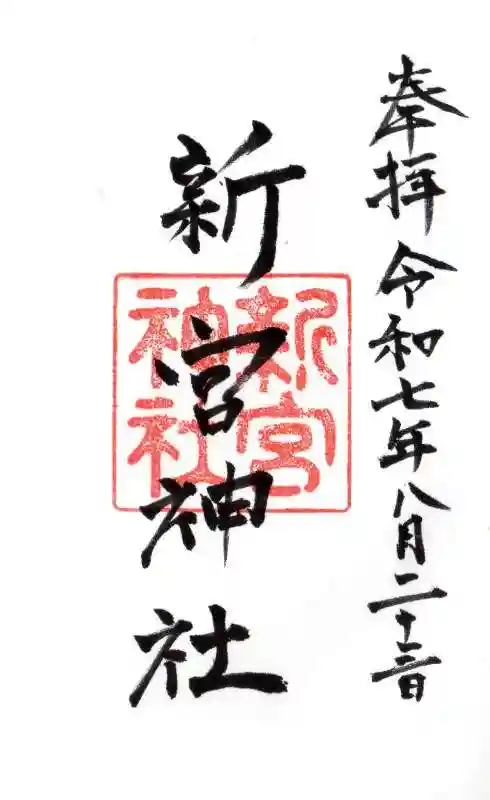 奉拝 令和七年八月二十三日
新宮神社
新宮
神社